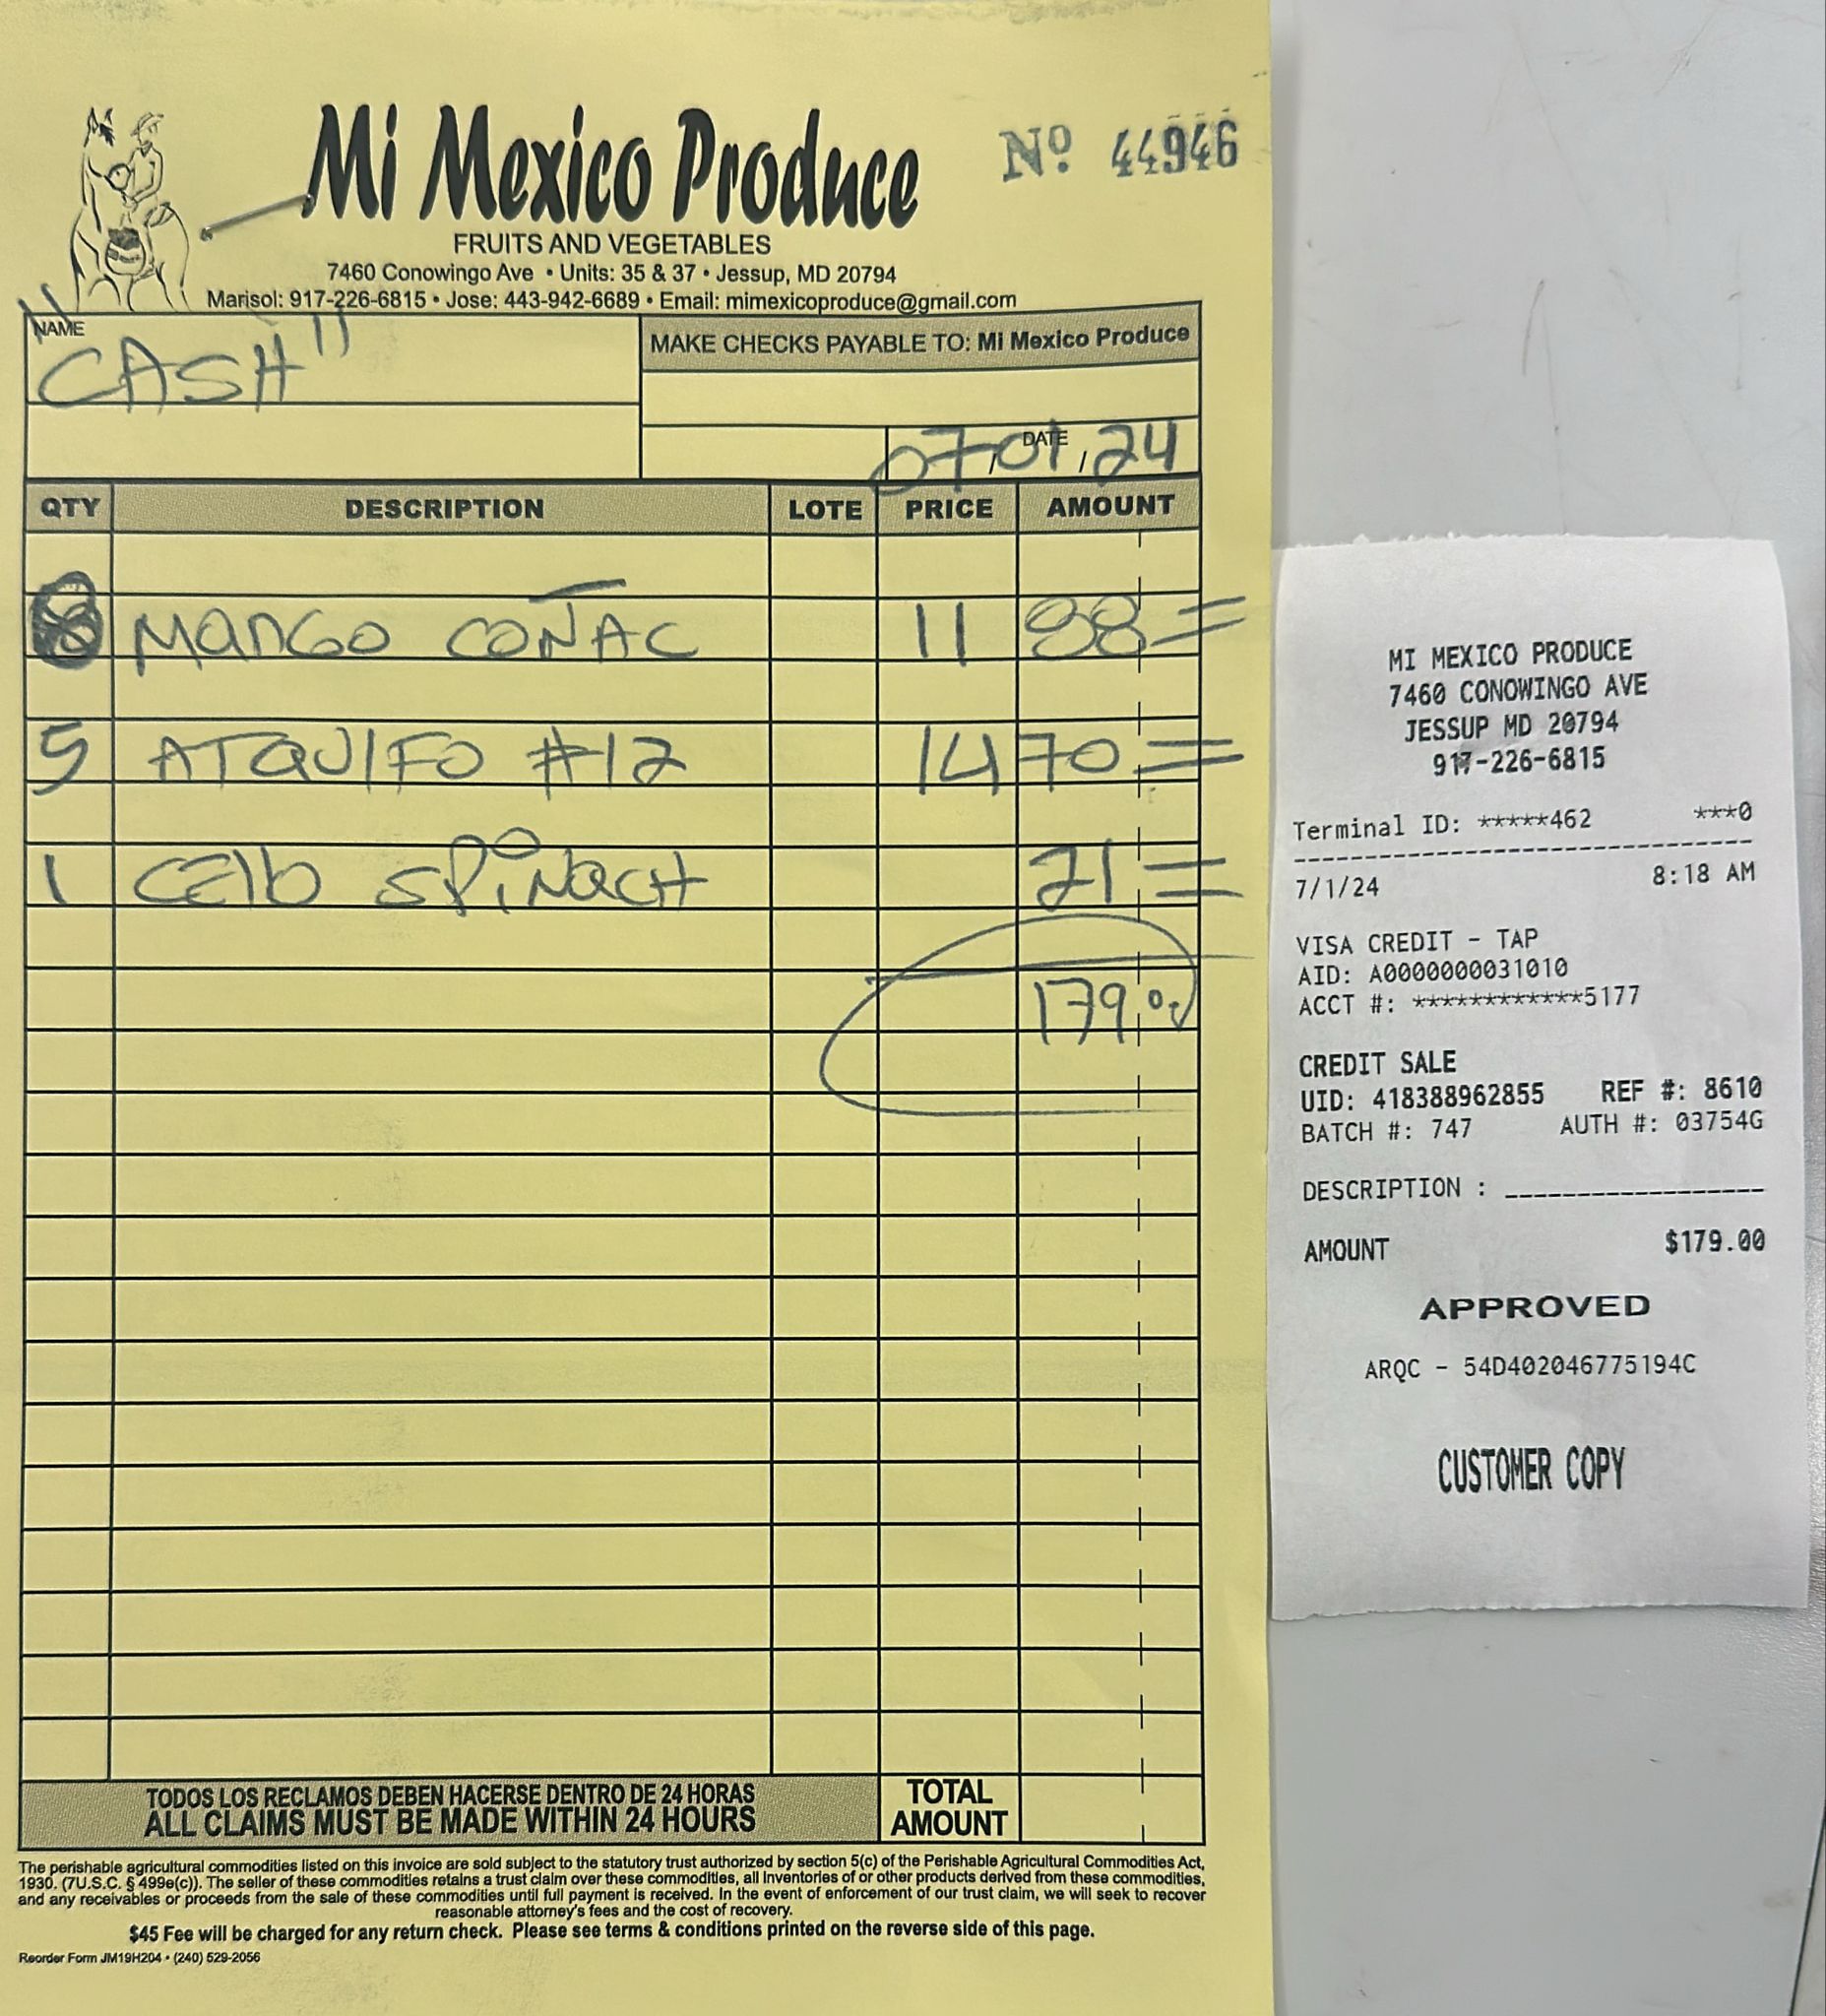 Mi Mexico Produce
Nº 44946
FRUITS AND VEGETABLES
7460 Conowingo Ave • Units: 35 & 37 • Jessup, MD 20794
Marisol: 917-226-6815 • Jose: 443-942-6689 • Email: mimexicoproduce@gmail.com
NAME
"CASH"
MAKE CHECKS PAYABLE TO: Mi Mexico Produce
DATE
07/01/24
QTY DESCRIPTION LOTE PRICE AMOUNT
8 MANGO COÑAC 11 88=
5 ATAQUIFO #12 14 70=
1 CELLO SPINACH 21=
179.00
TODOS LOS RECLAMOS DEBEN HACERSE DENTRO DE 24 HORAS
ALL CLAIMS MUST BE MADE WITHIN 24 HOURS
TOTAL
AMOUNT
The perishable agricultural commodities listed on this invoice are sold subject to the statutory trust authorized by section 5(c) of the Perishable Agricultural Commodities Act,
1930. (7U.S.C. § 499e(c)). The seller of these commodities retains a trust claim over these commodities, all Inventories of or other products derived from these commodities,
and any receivables or proceeds from the sale of these commodities until full payment is received. In the event of enforcement of our trust claim, we will seek to recover
reasonable attorney's fees and the cost of recovery.
$45 Fee will be charged for any return check. Please see terms & conditions printed on the reverse side of this page.
Reorder Form JM19H204 • (240) 529-2056
MI MEXICO PRODUCE
7460 CONOWINGO AVE
JESSUP MD 20794
917-226-6815
Terminal ID: *****462 ***0
7/1/24 8:18 AM
VISA CREDIT - TAP
AID: A0000000031010
ACCT #: ************5177
CREDIT SALE
UID: 418388962855 REF #: 8610
BATCH #: 747 AUTH #: 03754G
DESCRIPTION :
AMOUNT $179.00
APPROVED
ARQC - 54D402046775194C
CUSTOMER COPY